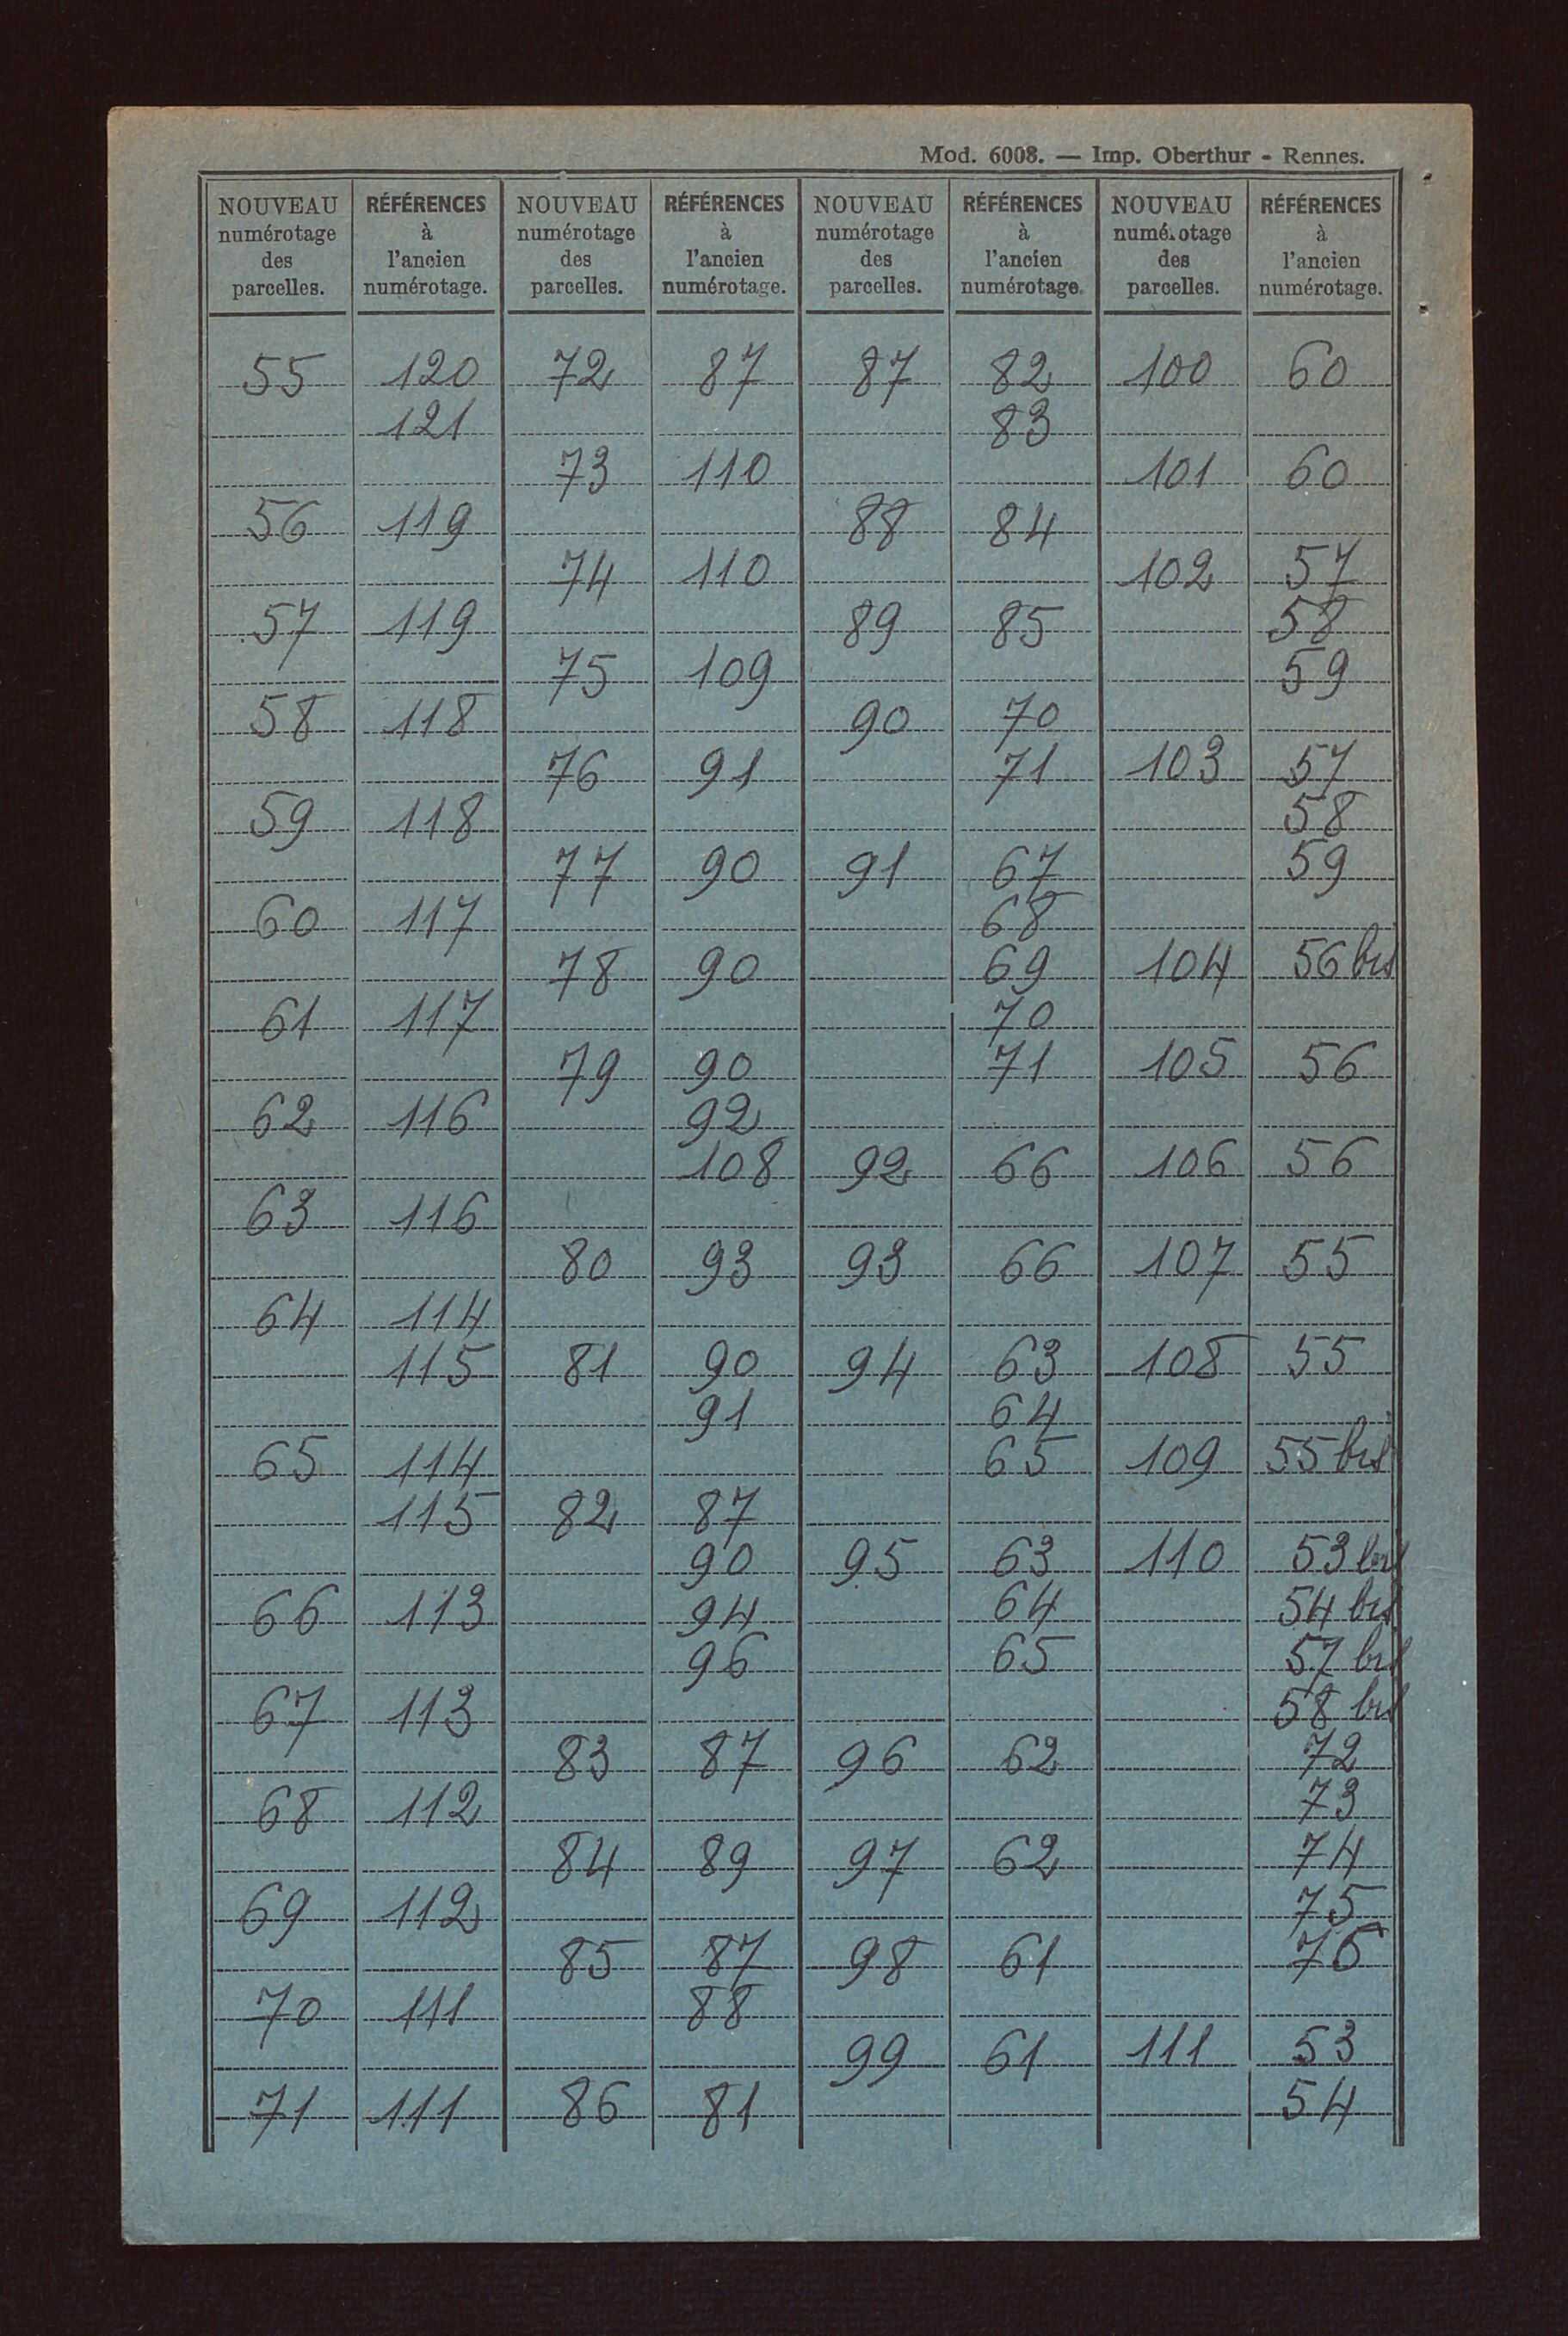 Mod. 6008. — Imp. Oberthur - Rennes.
NOUVEAU numérotage des parcelles. | RÉFÉRENCES à l'ancien numérotage. | NOUVEAU numérotage des parcelles. | RÉFÉRENCES à l'ancien numérotage. | NOUVEAU numérotage des parcelles. | RÉFÉRENCES à l'ancien numérotage. | NOUVEAU numérotage des parcelles. | RÉFÉRENCES à l'ancien numérotage.
55 120 72 87 87 82 100 60
121 83
73 110 101 60
56 119 88 84
74 110 102 57
57 119 89 85 58
75 109 59
58 118 90 70
76 91 71 103 57
59 118 58
77 90 91 67 59
60 117 68
78 90 69 104 56 bis
61 117 70
79 90 71 105 56
62 116 92
108 92 66 106 56
63 116
80 93 93 66 107 55
64 114
115 81 90 94 63 108 55
91 64
65 114 65 109 55 bis
115 82 87
90 95 63 110 53 bis
66 113 94 64 54 bis
96 65 57 bis
67 113 58 bis
83 87 96 62 72
68 112 73
84 89 97 62 74
69 112 75
85 87 98 61 76
70 111 88
99 61 111 53
71 111 86 81 54